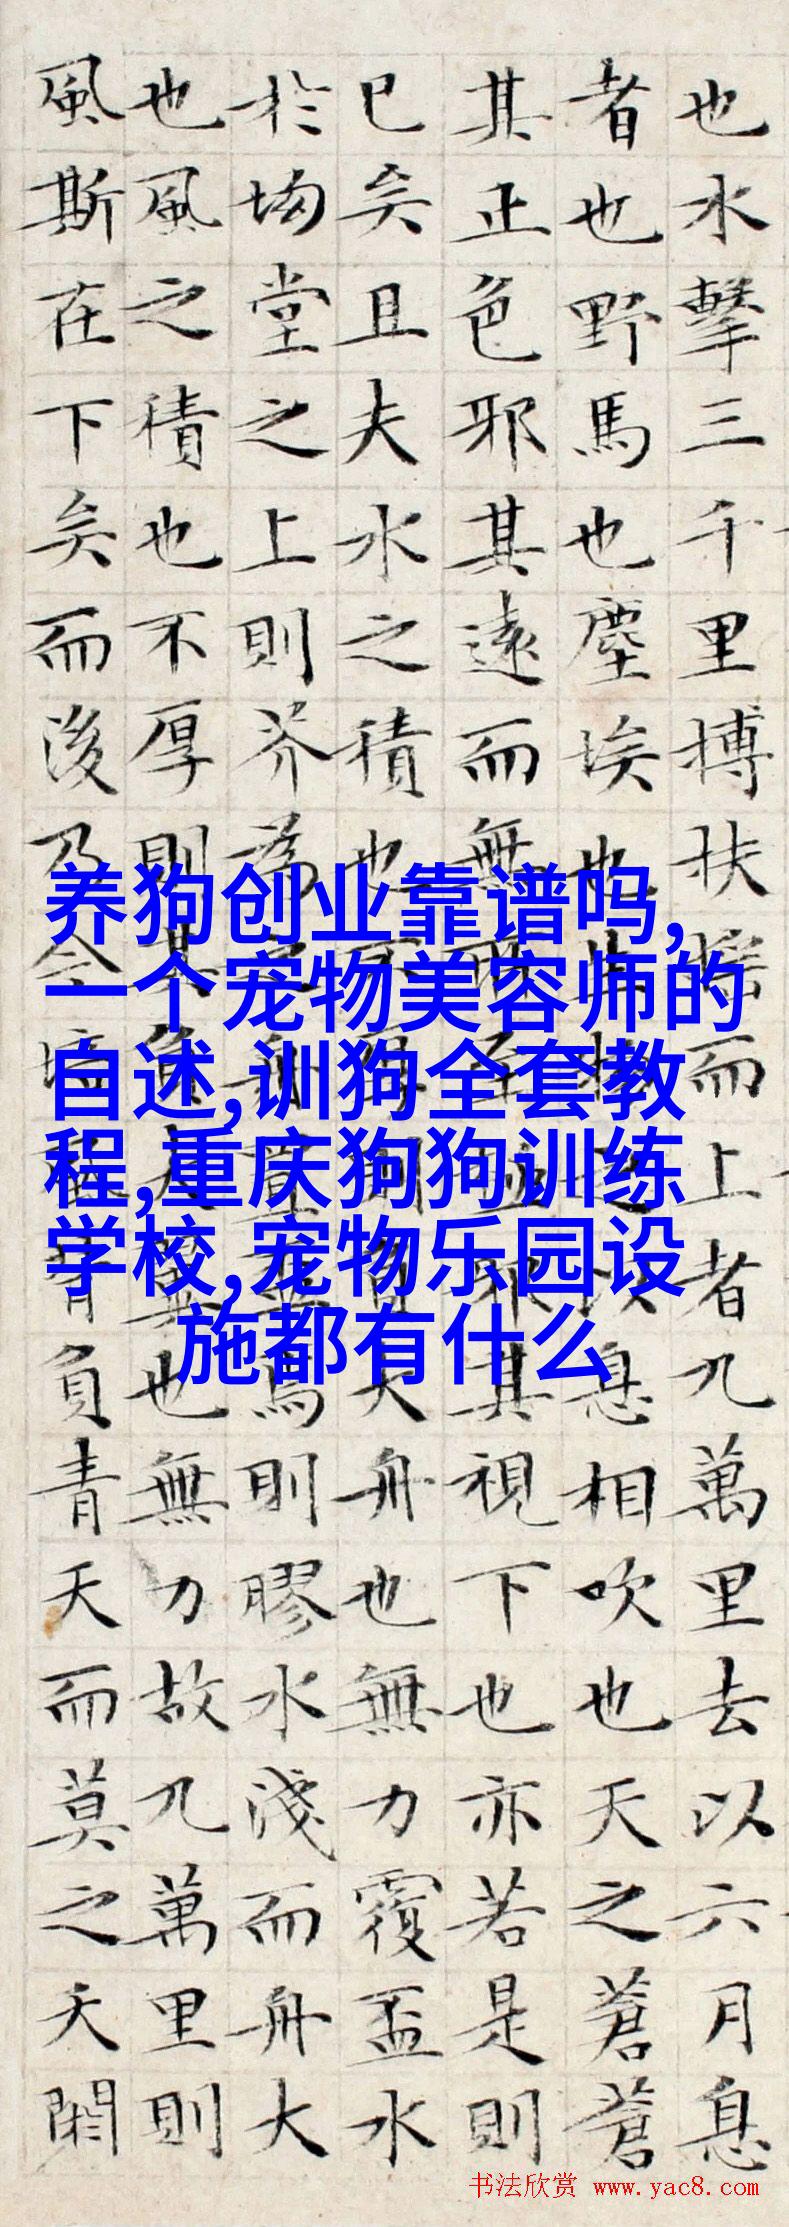 也水擊三千里搏扶搖而上者九萬里去以六月息
者也野馬也塵埃也生物之以息相吹也天之蒼蒼
其正色邪其遠而無所至極邪其視下也亦若是則
已矣且夫水之積也不厚則負大舟也無力覆盃水
於坳堂之上則芥為之舟置盃焉則膠水淺而舟大
也風之積也不厚則其負大翼也無力故九萬里則
風斯在下矣而後乃今培風背負青天而莫之夭閼
养狗创业靠谱吗,
一个宠物美容师的
自述,训狗全套教
程,重庆狗狗训练
学校,宠物乐园设
施都有什么
书法欣赏 www.yac8.com